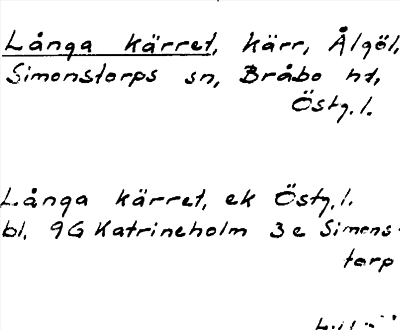 Långa kärret, kärr, Ålgöl,
Simonstorps sn, Bråbo hd,
Östg. l.
Långa kärret, ek Östg. l.
bl. 9G Katrineholm 3e Simons-
torp